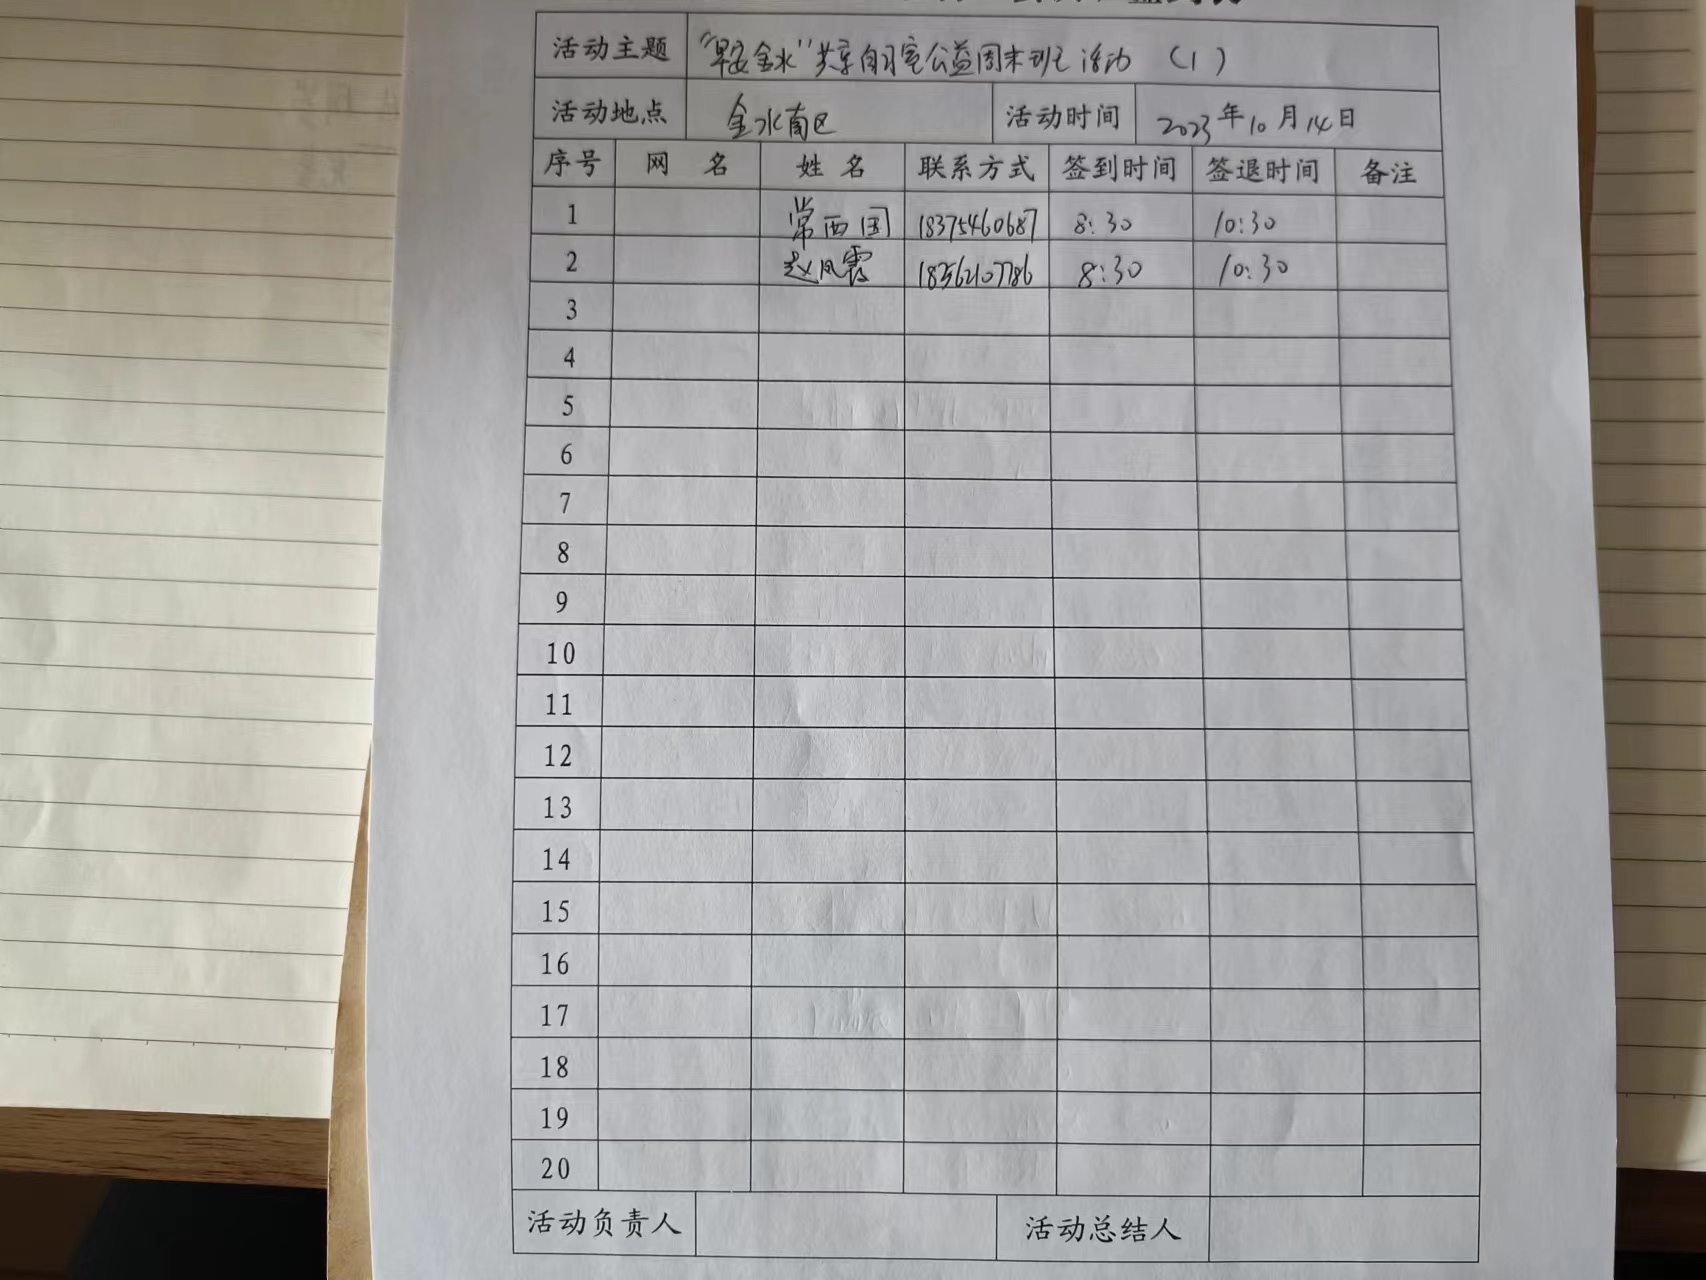 活动主题 “早安金水”共享自习室公益周末班活动 （1）
活动地点 金水南区 活动时间 2023年10月14日
序号 网 名 姓 名 联系方式 签到时间 签退时间 备注
1 常西国 18375460687 8:30 10:30
2 赵凤霞 18562107786 8:30 10:30
3
4
5
6
7
8
9
10
11
12
13
14
15
16
17
18
19
20
活动负责人 活动总结人